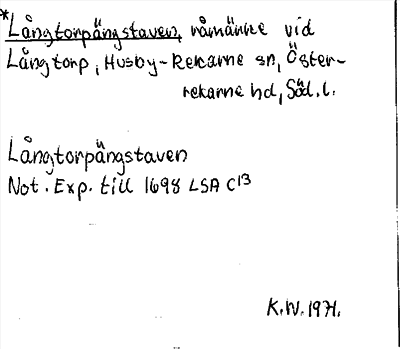 *Långtorpängstaven, råmärke vid
Långtorp, Husby-Rekarne sn, Öster-
rekarne hd, Söd. l.
Långtorpängstaven
Not. Exp. till 1698 LSA C13
K.W. 1971.